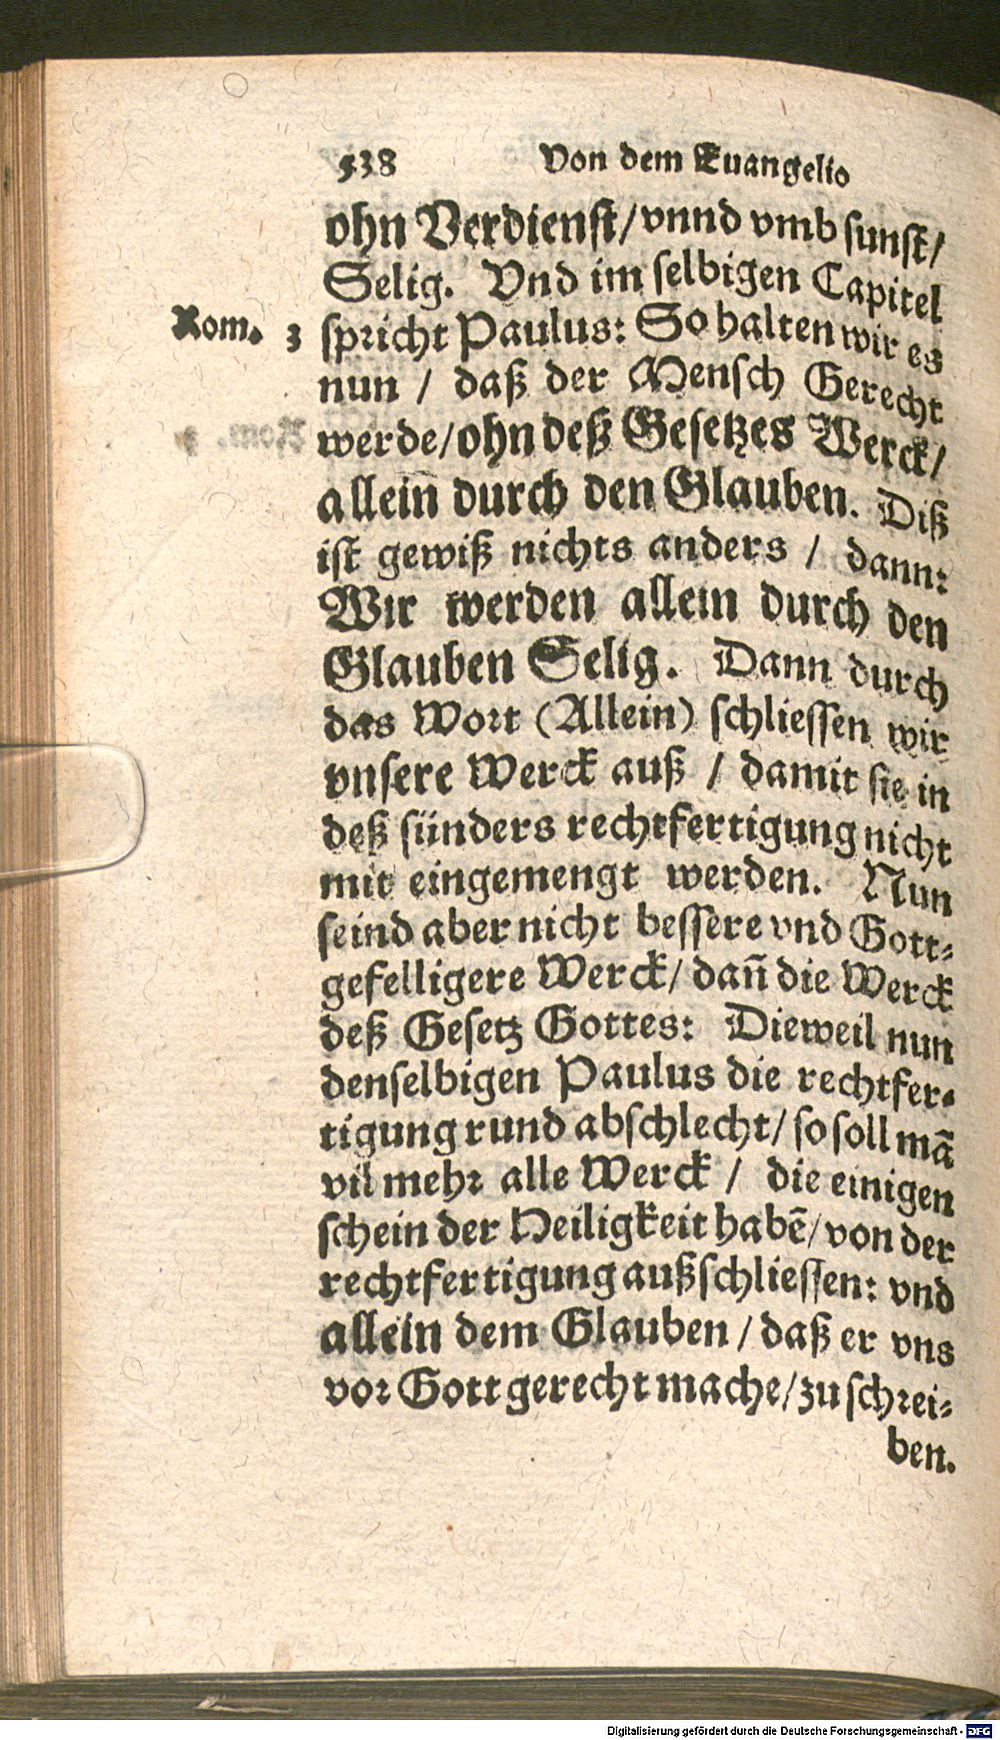 538 Von dem Euangelio
ohn Verdienst/ vnnd vmb sunst/
Selig. Vnd im selbigen Capitel
Rom. 3 spricht Paulus: So halten wir es
nun / daß der Mensch Gerecht
werde/ ohn deß Gesetzes Werck/
allein durch den Glauben. Diß
ist gewiß nichts anders / dann:
Wir werden allein durch den
Glauben Selig. Dann durch
das Wort (Allein) schliessen wir
vnsere Werck auß / damit sie in
deß sünders rechtfertigung nicht
mit eingemengt werden. Nun
seind aber nicht bessere vnd Gott-
gefelligere Werck/ dañ die Werck
deß Gesetz Gottes: Dieweil nun
denselbigen Paulus die rechtfer-
tigung rund abschlecht/ so soll mã
vil mehr alle Werck / die einigen
schein der Heiligkeit habẽ/ von der
rechtfertigung außschliessen: vnd
allein dem Glauben / daß er vns
vor Gott gerecht mache/ zu schrei-
ben.
Digitalisierung gefördert durch die Deutsche Forschungsgemeinschaft - DFG